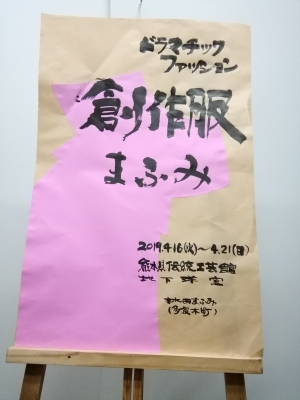 ドラマチック
ファッション
創作服
まふみ
2019.4.16(火)〜4.21(日)
熊本県伝統工芸館
地下味室
まふみ
(多良木町)